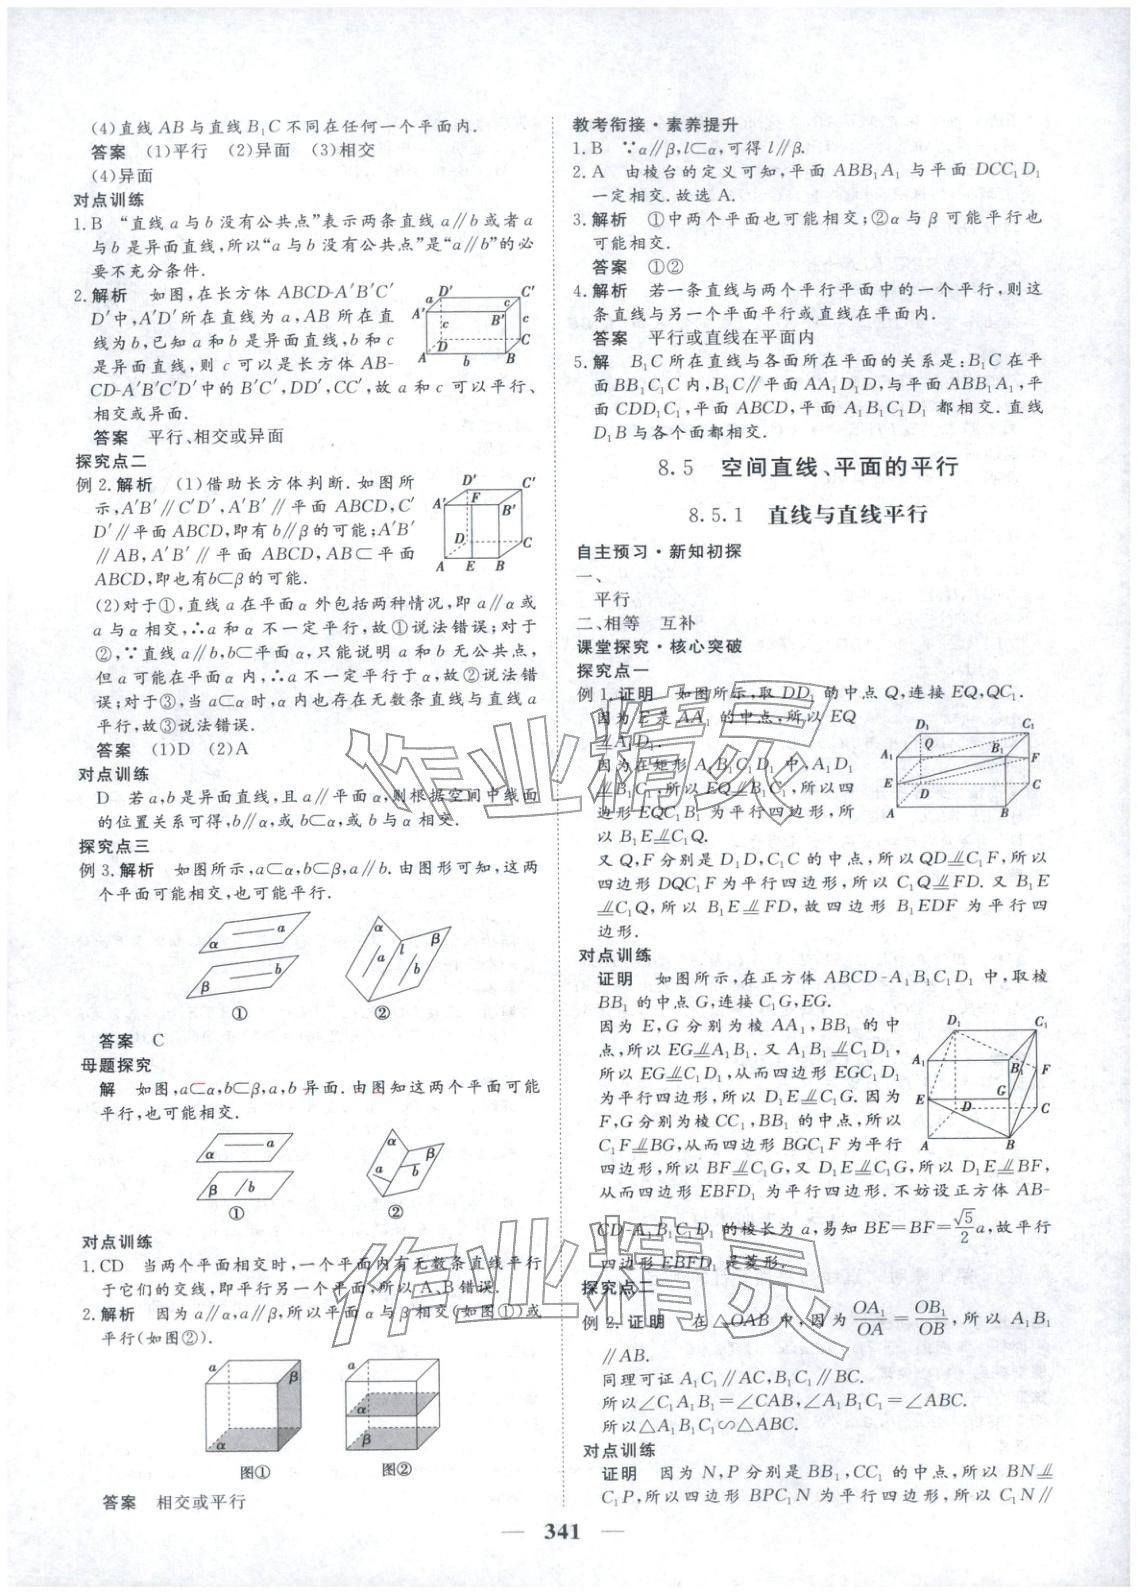 (4)直线 AB 与直线 B₁C 不同在任何一个平面内.
答案 (1)平行 (2)异面 (3)相交
(4)异面
对点训练
1.B “直线 a 与 b 没有公共点”表示两条直线 a∥b 或者 a
与 b 是异面直线,所以“a 与 b 没有公共点”是“a∥b”的必
要不充分条件.
2.解析 如图,在长方体 ABCD-A′B′C′
D′中,A′D′所在直线为 a,AB 所在直
线为 b,已知 a 和 b 是异面直线,b 和 c
是异面直线,则 c 可以是长方体 AB-
CD-A′B′C′D′中的 B′C′,DD′,CC′,故 a 和 c 可以平行、
相交或异面.
答案 平行、相交或异面
探究点二
例 2.解析 (1)借助长方体判断.如图所
示,A′B′∥C′D′,A′B′∥平面 ABCD,C′
D′∥平面 ABCD,即有 b∥β 的可能;A′B′
∥AB,A′B′∥平面 ABCD,AB⊂平面
ABCD,即也有b⊂β的可能.
(2)对于①,直线 a 在平面 α 外包括两种情况,即 a∥α 或
a 与 α 相交,∴a 和 α 不一定平行,故①说法错误;对于
②,∵直线 a∥b,b⊂平面 α,只能说明 a 和 b 无公共点,
但 a 可能在平面 α 内,∴a 不一定平行于 α,故②说法错
误;对于③,当 a⊂α 时,α 内也存在无数条直线与直线 a
平行,故③说法错误.
答案 (1)D (2)A
对点训练
D 若 a,b 是异面直线,且 a∥平面 α,则根据空间中线面
的位置关系可得,b∥α,或 b⊂α,或 b 与 α 相交.
探究点三
例 3.解析 如图所示,a⊂α,b⊂β,a∥b.由图形可知,这两
个平面可能相交,也可能平行.
① ②
答案 C
母题探究
解 如图,a⊂α,b⊂β,a,b 异面.由图知这两个平面可能
平行,也可能相交.
① ②
对点训练
1.CD 当两个平面相交时,一个平面内有无数条直线平行
于它们的交线,即平行另一个平面,所以 A、B 错误.
2.解析 因为 a∥α,a∥β,所以平面 α 与 β 相交(如图①)或
平行(如图②).
图① 图②
答案 相交或平行
教考衔接·素养提升
1.B ∵α∥β,l⊂α,可得 l∥β.
2.A 由棱台的定义可知,平面 ABB₁A₁ 与平面 DCC₁D₁
一定相交.故选 A.
3.解析 ①中两个平面也可能相交;②α 与 β 可能平行也
可能相交.
答案 ①②
4.解析 若一条直线与两个平行平面中的一个平行,则这
条直线与另一个平面平行或直线在平面内.
答案 平行或直线在平面内
5.解 B₁C 所在直线与各面所在平面的关系是:B₁C 在平
面 BB₁C₁C 内,B₁C∥平面 AA₁D₁D,与平面 ABB₁A₁,平
面 CDD₁C₁,平面 ABCD,平面 A₁B₁C₁D₁ 都相交.直线
D₁B 与各个面都相交.
8.5 空间直线、平面的平行
8.5.1 直线与直线平行
自主预习·新知初探
一、
平行
二、相等 互补
课堂探究·核心突破
探究点一
例 1.证明 如图所示,取 DD₁ 的中点 Q,连接 EQ,QC₁.
因为 E 是 AA₁ 的中点,所以 EQ
⫽A₁D₁.
因为在矩形 A₁B₁C₁D₁ 中,A₁D₁
⫽B₁C₁,所以 EQ⫽B₁C₁,所以四
边形 EQC₁B₁ 为平行四边形,所
以 B₁E⫽C₁Q.
又 Q,F 分别是 D₁D,C₁C 的中点,所以 QD⫽C₁F,所以
四边形 DQC₁F 为平行四边形,所以 C₁Q⫽FD.又 B₁E
⫽C₁Q,所以 B₁E⫽FD,故四边形 B₁EDF 为平行四
边形.
对点训练
证明 如图所示,在正方体 ABCD-A₁B₁C₁D₁ 中,取棱
BB₁ 的中点 G,连接 C₁G,EG.
因为 E,G 分别为棱 AA₁,BB₁ 的中
点,所以 EG⫽A₁B₁.又 A₁B₁⫽C₁D₁,
所以 EG⫽C₁D₁,从而四边形 EGC₁D₁
为平行四边形,所以 D₁E⫽C₁G.因为
F,G 分别为棱 CC₁,BB₁ 的中点,所以
C₁F⫽BG,从而四边形 BGC₁F 为平行
四边形,所以 BF⫽C₁G,又 D₁E⫽C₁G,所以 D₁E⫽BF,
从而四边形 EBFD₁ 为平行四边形.不妨设正方体 AB-
CD-A₁B₁C₁D₁ 的棱长为 a,易知 BE=BF=√5/2 a,故平行
四边形 EBFD₁ 是菱形.
探究点二
例 2.证明 在△OAB 中,因为 OA₁/OA=OB₁/OB,所以 A₁B₁
∥AB.
同理可证 A₁C₁∥AC,B₁C₁∥BC.
所以∠C₁A₁B₁=∠CAB,∠A₁B₁C₁=∠ABC.
所以△A₁B₁C₁∽△ABC.
对点训练
证明 因为 N,P 分别是 BB₁,CC₁ 的中点,所以 BN⫽
C₁P,所以四边形 BPC₁N 为平行四边形,所以 C₁N∥
— 341 —
作业精灵
作业精灵